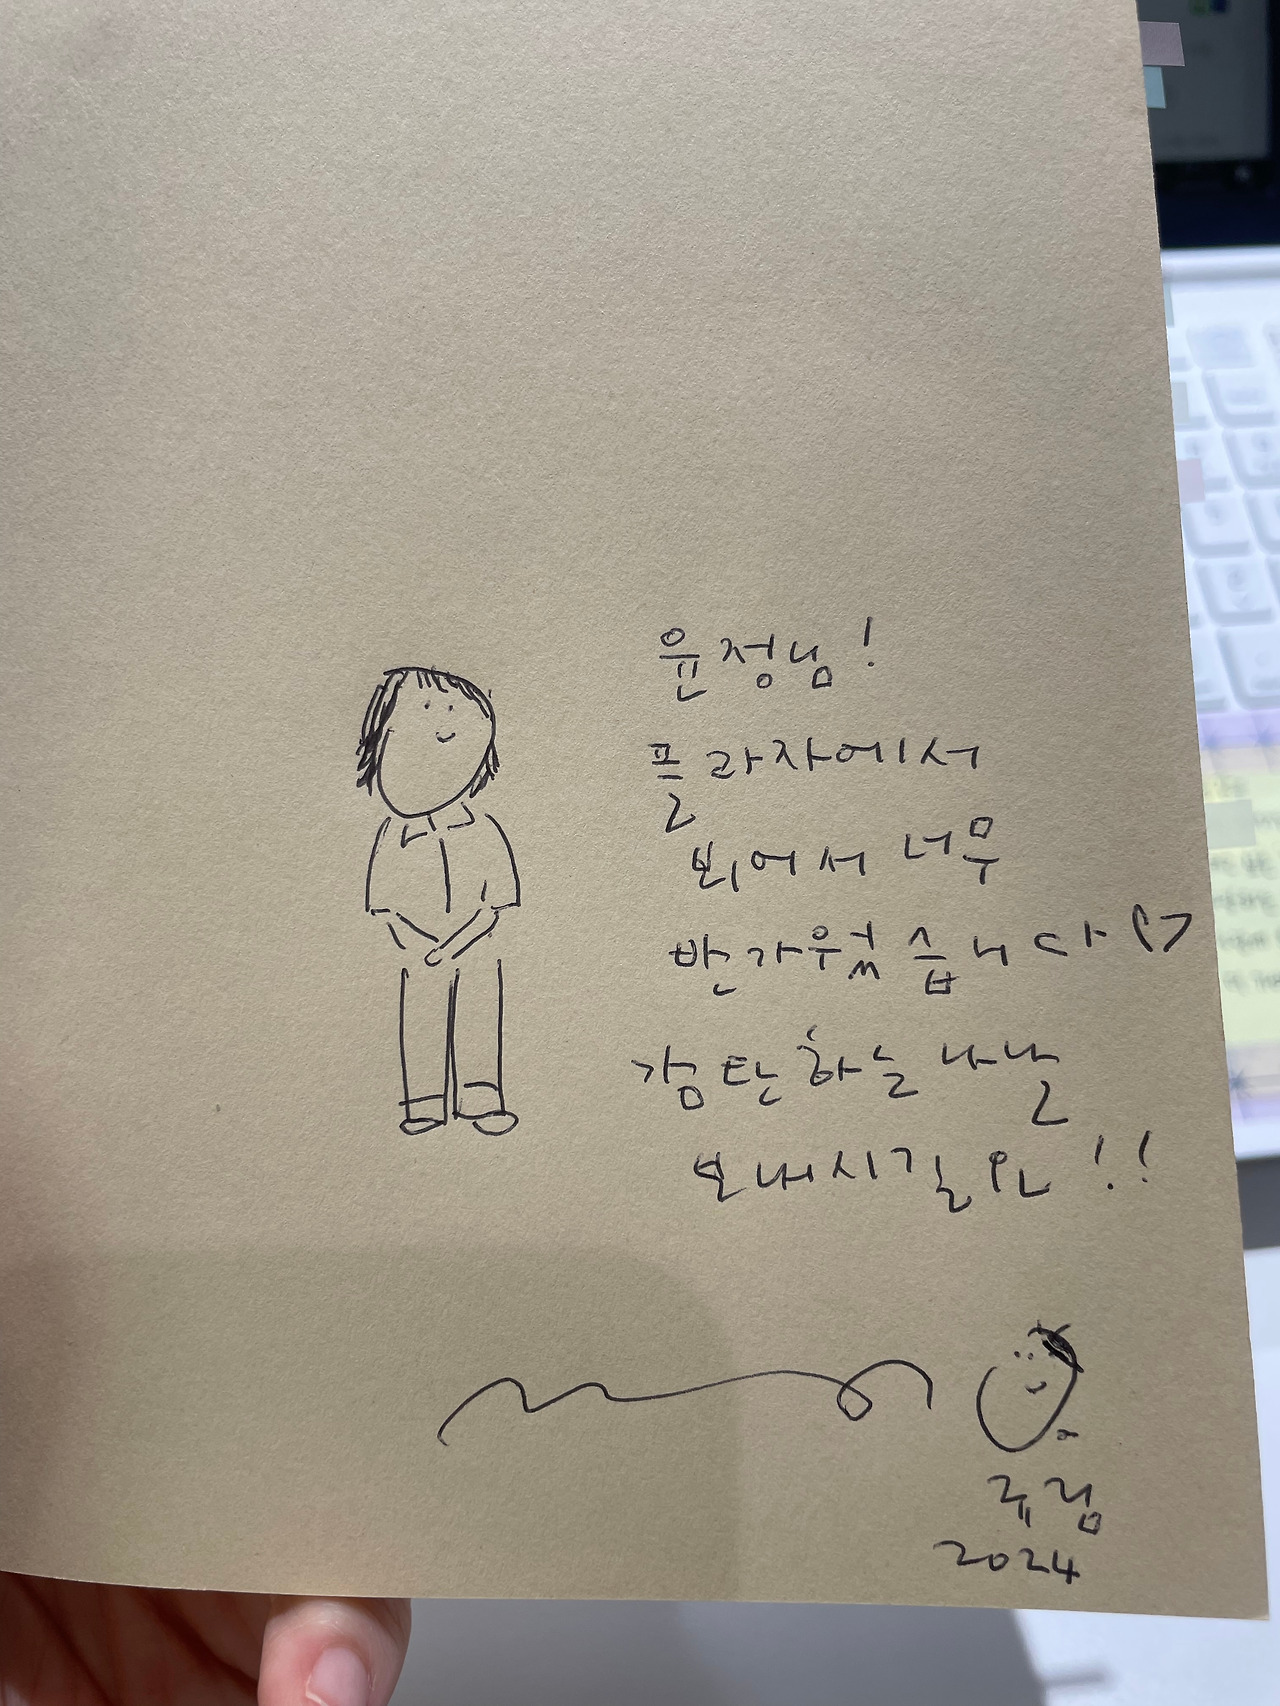 윤정님!
플라자에서
뵈어서 너무
반가웠습니다♡
감탄하는 나날
보내시길 원!!
류림
2024